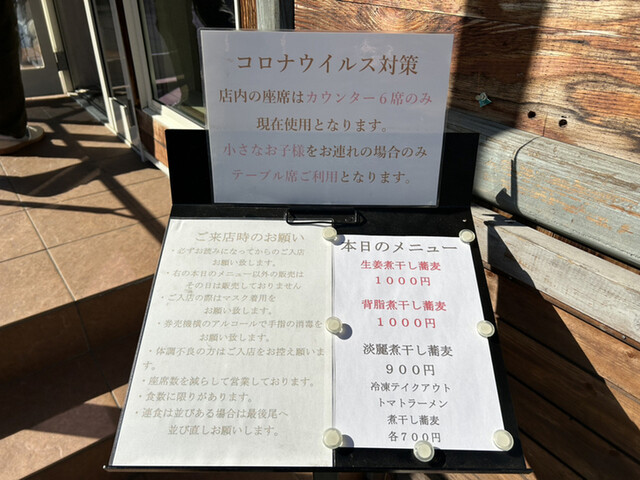 コロナウイルス対策
店内の座席はカウンター６席のみ
現在使用となります。
小さなお子様をお連れの場合のみ
テーブル席ご利用となります。
ご来店時のお願い
・必ずお読みになってからのご入店
お願い致します。
・右の本日のメニュー以外の販売は
その日は販売しておりません
・ご入店の際はマスク着用を
お願い致します。
・券売機横のアルコールで手指の消毒を
お願い致します。
・体調不良の方はご入店をお控え願いま
す。
・座席数を減らして営業しております。
・食数に限りがあります。
・連食は並びある場合は最後尾へ
並び直しお願いします。
本日のメニュー
生姜煮干し蕎麦
１０００円
背脂煮干し蕎麦
１０００円
淡麗煮干し蕎麦
９００円
冷凍テイクアウト
トマトラーメン
煮干し蕎麦
各７００円